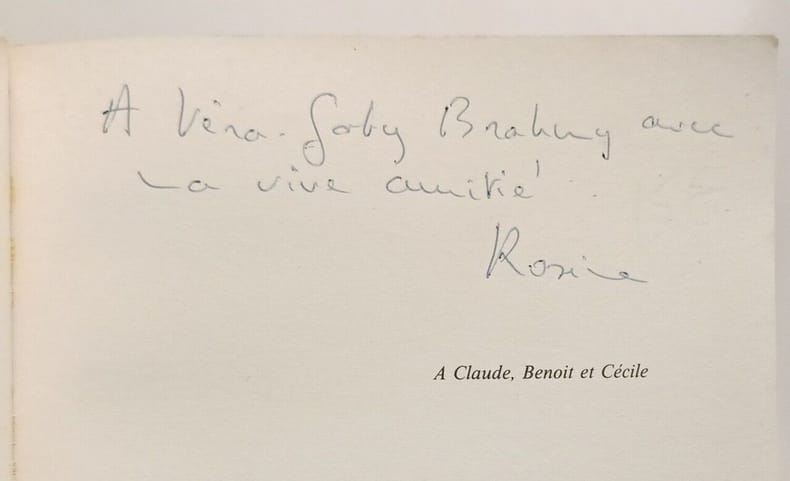 A Véra-Goby Brahmy avec
La vive amitié
Rosine
A Claude, Benoit et Cécile